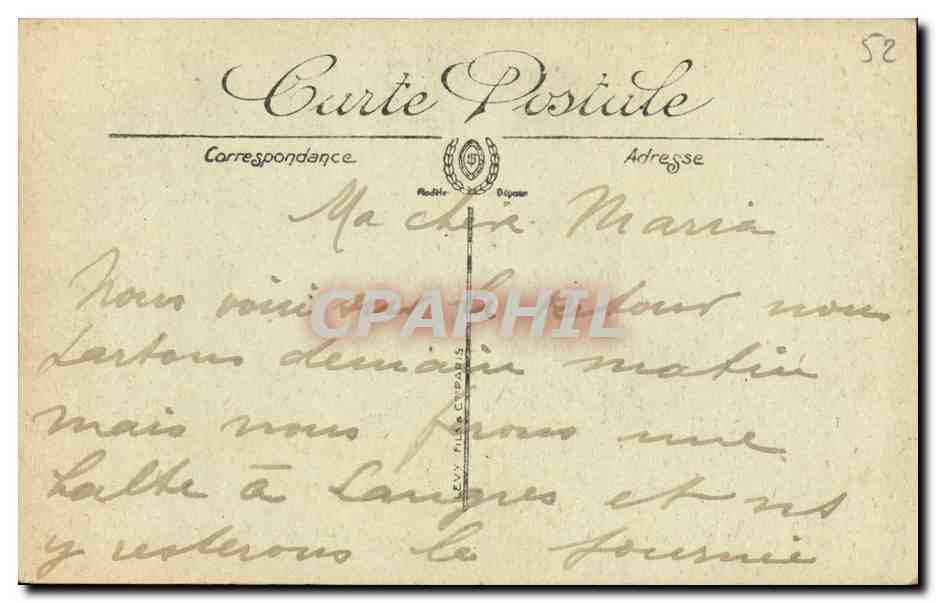 52
Carte Postale
Correspondance
Adresse
Modèle Déposé
Ma chère Maria
Nous voici sur le retour nous
partons demain matin
mais nous ferons une
halte à Langres et ns
y resterons la journée
LEVY FILS & Cie PARIS
CPAPHIL